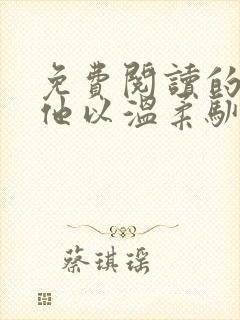 免費閱讀的
他以溫柔馴
蔡琪瑶